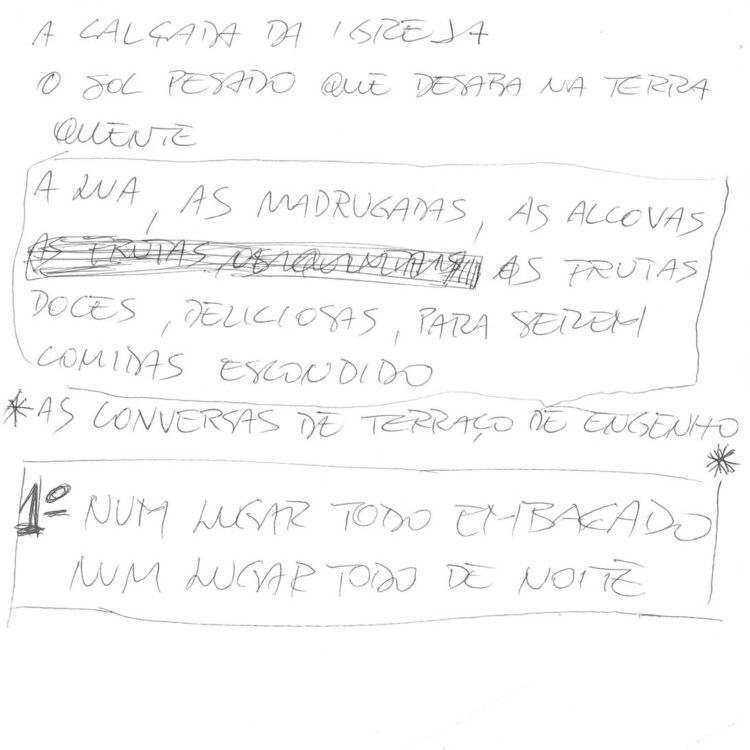 A CALÇADA DA IGREJA
O SOL PESADO QUE DESABA NA TERRA
QUENTE
A LUA, AS MADRUGADAS, AS ALCOVAS
AS FRUTAS, AS FRUTAS
DOCES, DELICIOSAS, PARA SEREM
COMIDAS ESCONDIDO
*AS CONVERSAS DE TERRAÇO DE ENGENHO
*
1º NUM LUGAR TODO EMBAÇADO
NUM LUGAR TODO DE NOITE